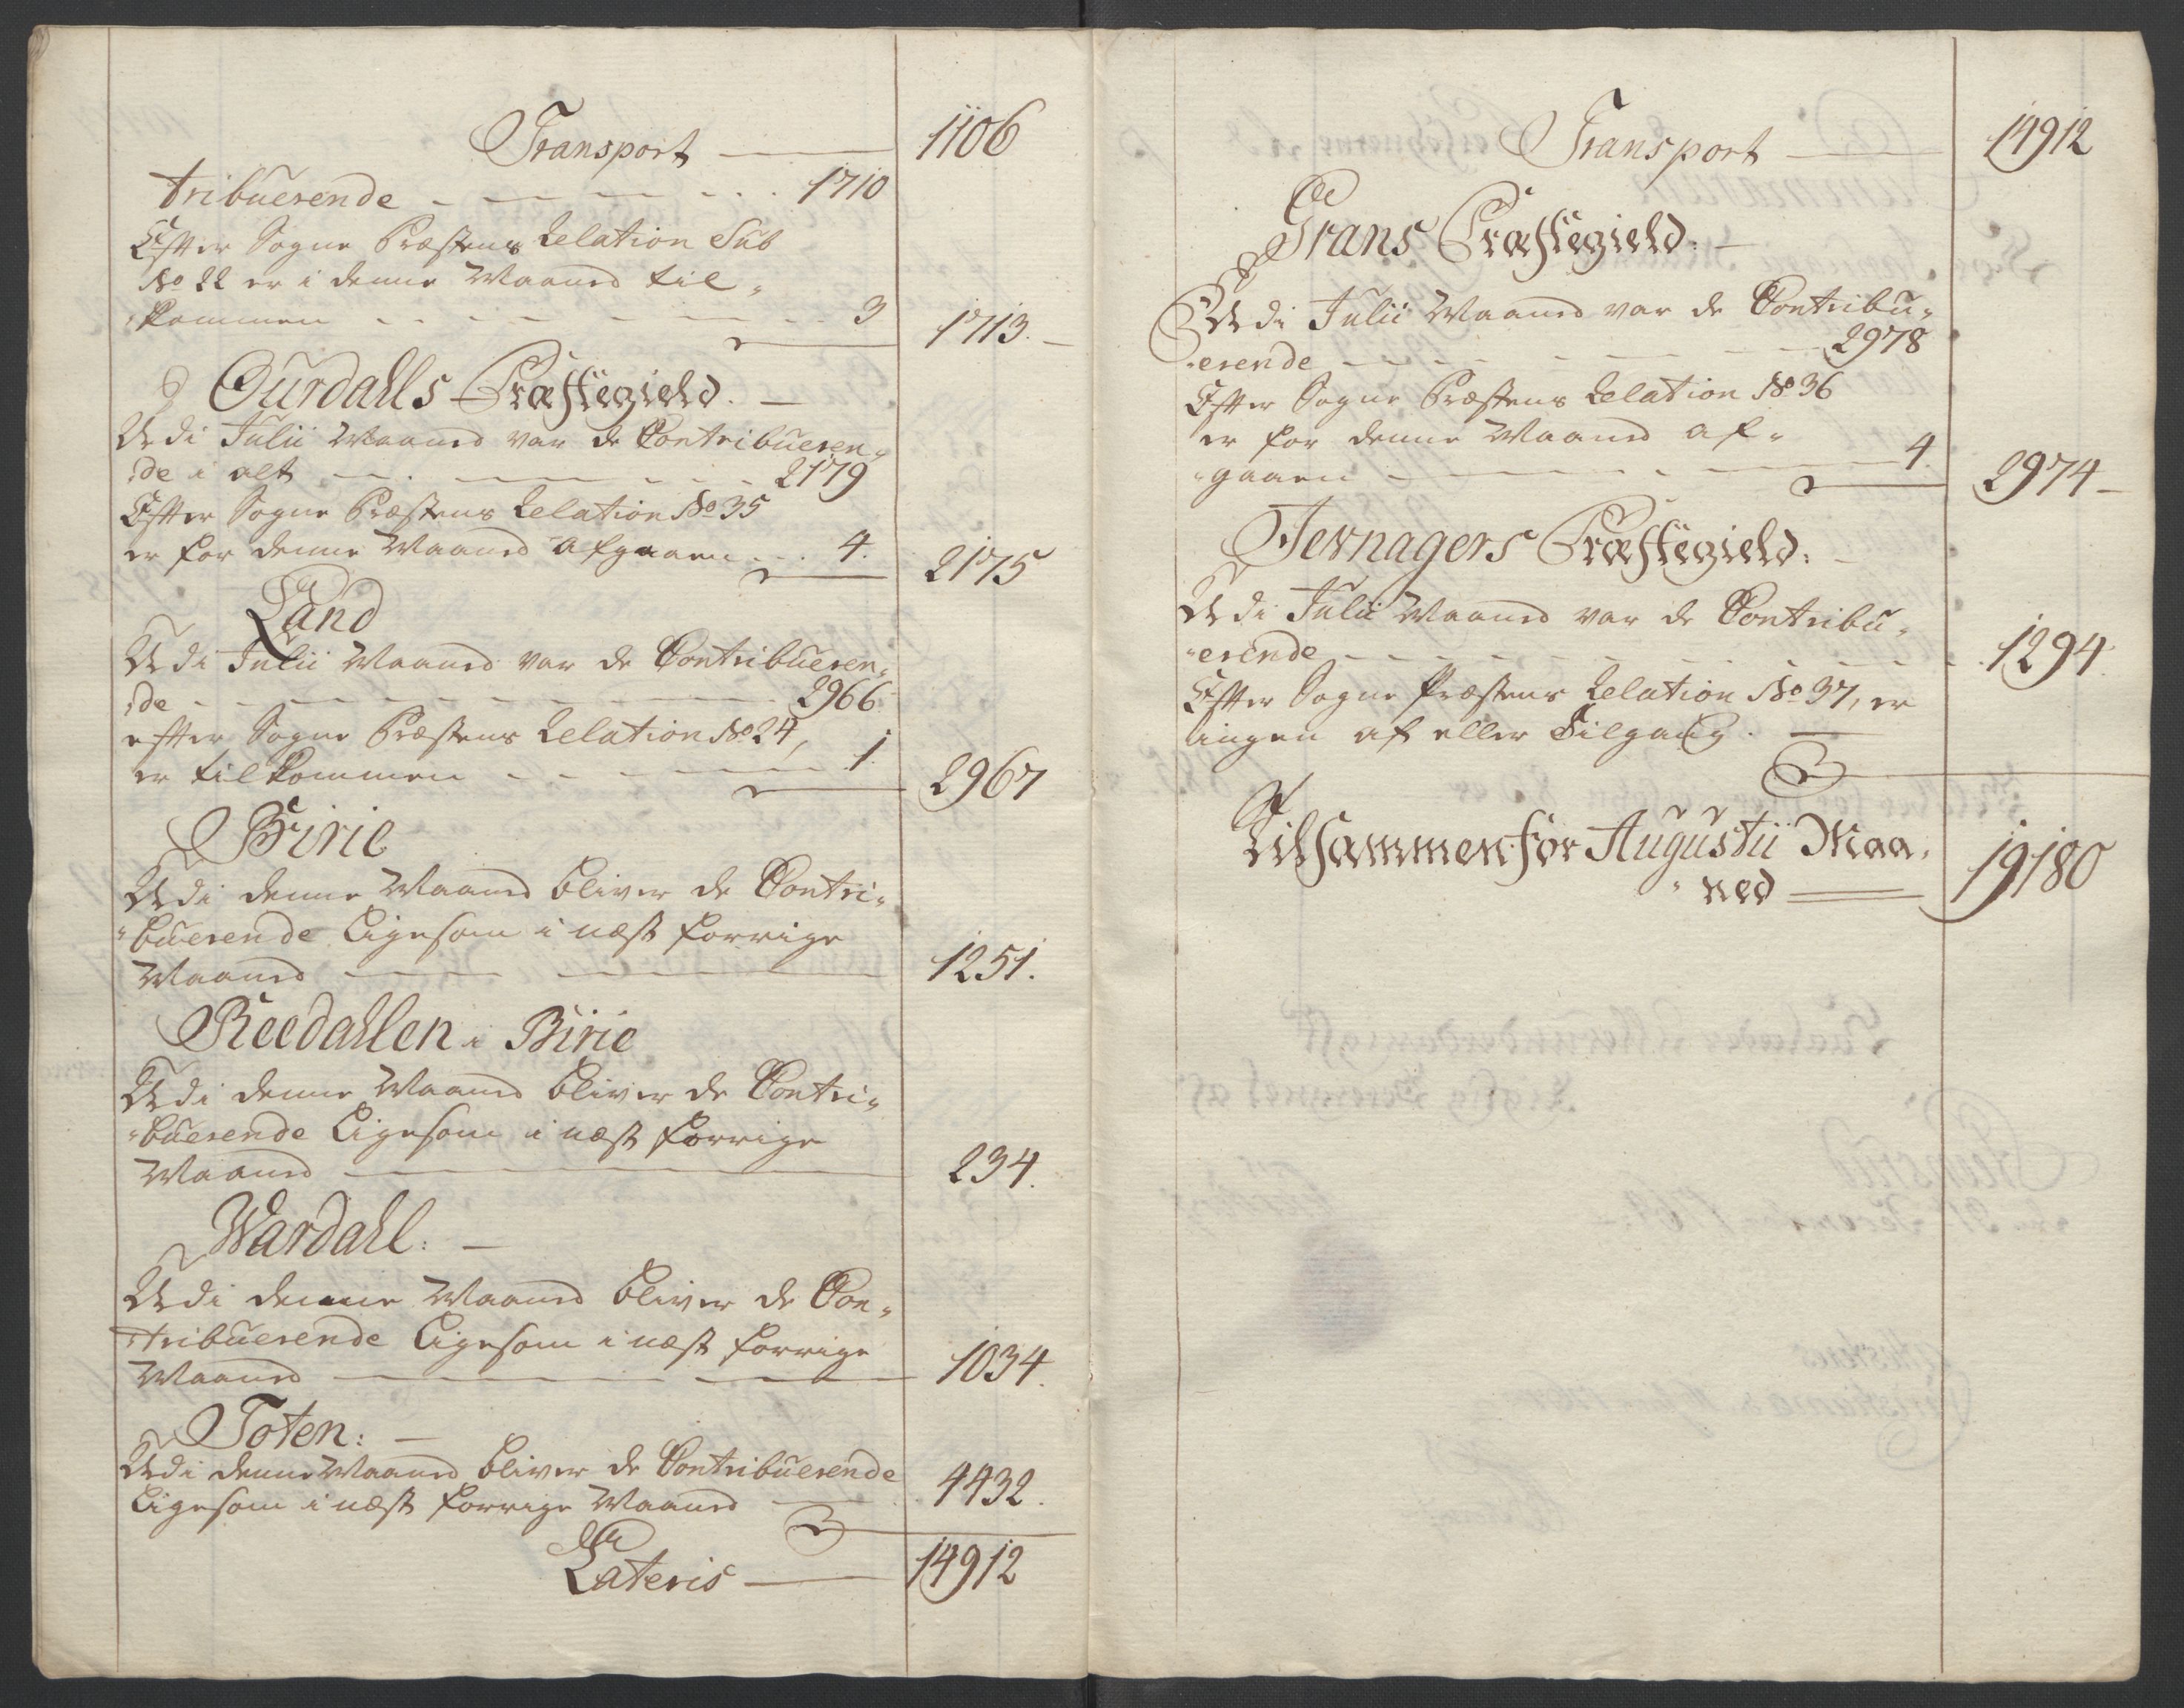 Transport — 1106
tribuerende — 1710
Efter Sogne Præstens Relation Sub
No 22 er i denne Maaned til-
kommen — 3 1713.
Ourdahls Præstegield.
Udi Julii Maaned var de Contribueren-
de i alt — 2179
Efter Sogne Præstens Relation No 35
er for denne Maaned afgaaen — 4. 2175
Land
Udi Julii Maaned var de Contribueren-
de — 2966
efter Sogne Præstens Relation No 24,
er tilkommen — 1. 2967
Birie
Udi denne Maaned bliver de Contri-
buerende ligesom i næst forrige
Maaned — 1251.
Reedahlen i Birie
Udi denne Maaned bliver de Contri-
buerende ligesom i næst forrige
Maaned — 234.
Wardahl:
Udi denne Maaned bliver de Con-
tribuerende ligesom i næst forrige
Maaned — 1034.
Toten:
Udi denne Maaned bliver de Contribuerende
ligesom i næst forrige Maaned — 4432.
Lateris — 14912
Transport — 14912
Grans Præstegield:
Udi Julii Maaned var de Contribu-
erende — 2978
Efter Sogne Præstens Relation No 36
er for denne Maaned af-
gaaen — 4. 2974
Jevnagers Præstegield:
Udi Julii Maaned var de Contribu-
erende — 1294.
Efter Sogne Præstens Relation No 37, er
ingen af eller Tilgang.
Tilsammen for Augustii Maa-
ned — 19180